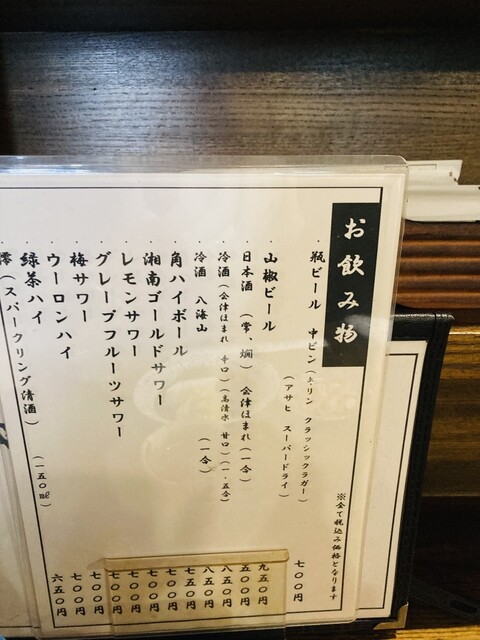 お飲み物
※全て税込み価格となります
・瓶ビール 中ビン(キリン クラッシックラガー) 七〇〇円
(アサヒ スーパードライ)
・山椒ビール 九五〇円
・日本酒 (常、燗) 会津ほまれ(一合) 五〇〇円
・冷酒(会津ほまれ 辛口)(高清水 甘口)(一・五合) 八五〇円
・冷酒 八海山 (一合) 八五〇円
・角ハイボール 七五〇円
・湘南ゴールドサワー 七〇〇円
・レモンサワー 七〇〇円
・グレープフルーツサワー 七〇〇円
・梅サワー 七〇〇円
・ウーロンハイ 七〇〇円
・緑茶ハイ 七〇〇円
澪(スパークリング清酒) (一五〇㎖) 六五〇円